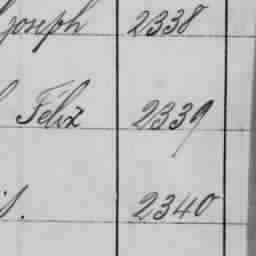 Joseph 2338
Félix 2339
s. 2340